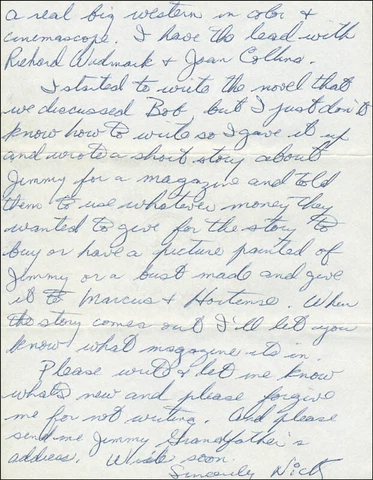 a real big western in color &
cinemascope. I have the lead with
Richard Widmark & Joan Collins.
I started to write the novel that
we discussed Bob, but I just don't
know how to write so I gave it up
and wrote a short story about
Jimmy for a magazine and told
them to use whatever money they
wanted to give for the story to
buy or have a picture painted of
Jimmy or a bust made and give
it to Marcus & Hortense. When
the story comes out I'll let you
know what magazine its in.
Please write & let me know
whats new and please forgive
me for not writing. And please
send me Jimmy Grandfather's
address. Write soon.
Sincerely Nick